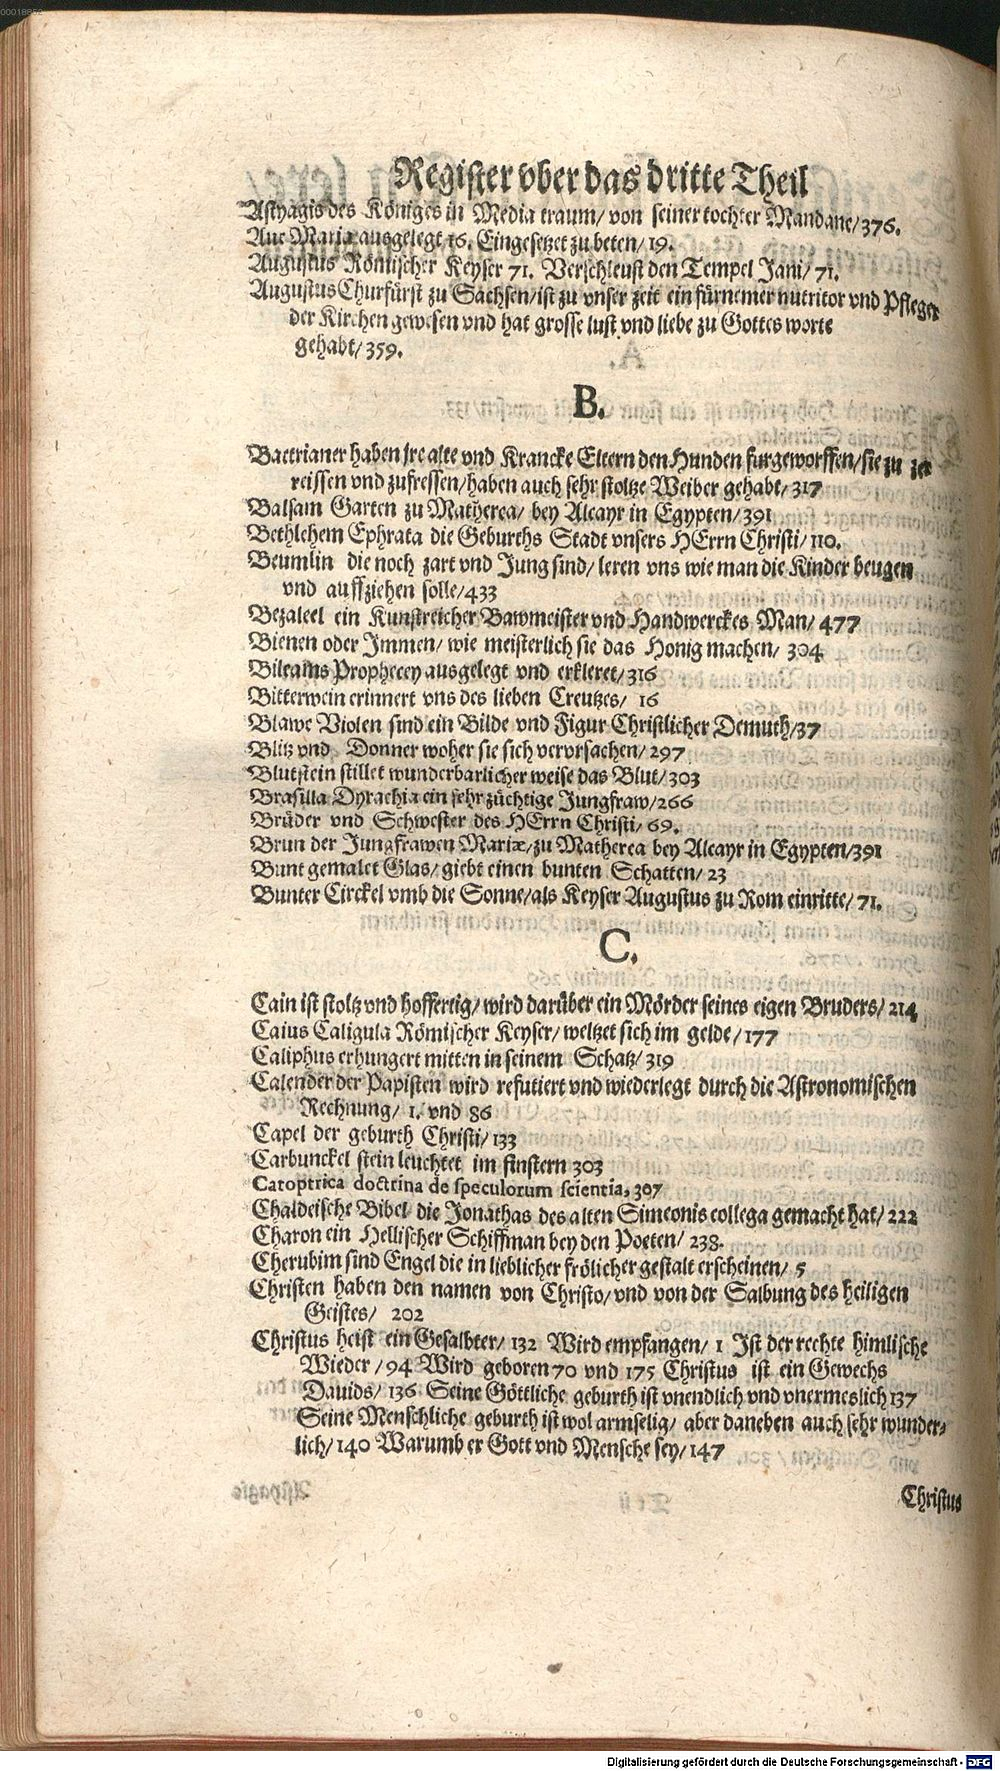 Register vber das dritte Theil
Astyagis des Königes in Media traum/ von seiner tochter Mandane/376.
Aue Maria ausgelegt 16. Eingesetzet zu beten/ 19.
Augustus Römischer Keyser 71. Verschleust den Tempel Jani/ 71.
Augustus Churfürst zu Sachsen/ist zu vnser zeit ein fürnemer nutritor vnd Pfleger
der Kirchen gewesen vnd hat grosse lust vnd liebe zu Gottes worte
gehabt/ 359.
B.
Bactrianer haben jre alte vnd Krancke Eltern den Hunden furgeworffen/sie zu zer
reissen vnd zufressen/haben auch sehr stoltze Weiber gehabt/ 317
Balsam Garten zu Matherea/ bey Alcayr in Egypten/391
Bethlehem Ephrata die Geburths Stadt vnsers HErrn Christi/ 110.
Beumlin die noch zart vnd Jung sind/ leren vns wie man die Kinder beugen
vnd auffziehen solle/433
Bezaleel ein Kunstreicher Bawmeister vnd Handwerckes Man/ 477
Bienen oder Immen/ wie meisterlich sie das Honig machen/ 304
Bileams Prophecey ausgelegt vnd erkleret/316
Bitterwein erinnert vns des lieben Creutzes/ 16
Blawe Violen sind ein Bilde vnd Figur Christlicher Demuth/37
Blitz vnd Donner woher sie sich vervrsachen/ 297
Blutstein stillet wunderbarlicher weise das Blut/303
Brasilla Dyrachia ein sehr züchtige Jungfraw/266
Brüder vnd Schwester des HErrn Christi/ 69.
Brun der Jungfrawen Mariæ/zu Matherea bey Alcayr in Egypten/391
Bunt gemalet Glas/ giebt einen bunten Schatten/ 23
Bunter Circkel vmb die Sonne/als Keyser Augustus zu Rom einritte/ 71.
C.
Cain ist stoltz vnd hoffertig/ wird darüber ein Mörder seines eigen Bruders/ 214
Caius Caligula Römischer Keyser/ weltzet sich im gelde/177
Caliphus erhungert mitten in seinem Schatz/ 319
Calender der Papisten wird refutiert vnd wiederlegt durch die Astronomischen
Rechnung/ 1. vnd 86
Capel der geburth Christi/ 133
Carbunckel stein leuchtet im finstern 303
Catoptrica doctrina de speculorum scientia, 307
Chaldeische Bibel die Jonathas des alten Simeonis collega gemacht hat/ 222
Charon ein Hellischer Schiffman bey den Poeten/ 238.
Cherubim sind Engel die in lieblicher frölicher gestalt erscheinen/ 5
Christen haben den namen von Christo/ vnd von der Salbung des heiligen
Geistes/ 202
Christus heist ein Gesalbter/ 132 Wird empfangen/ 1 Ist der rechte himlische
Wieder / 94 Wird geboren 70 vnd 175 Christus ist ein Gewechs
Dauids/ 136 Seine Göttliche geburth ist vnendlich vnd vnermeslich 137
Seine Menschliche geburth ist wol armselig/ aber daneben auch sehr wunder-
lich/ 140 Warumb er Gott vnd Mensche sey/ 147
Christus
Digitalisierung gefördert durch die Deutsche Forschungsgemeinschaft - DFG